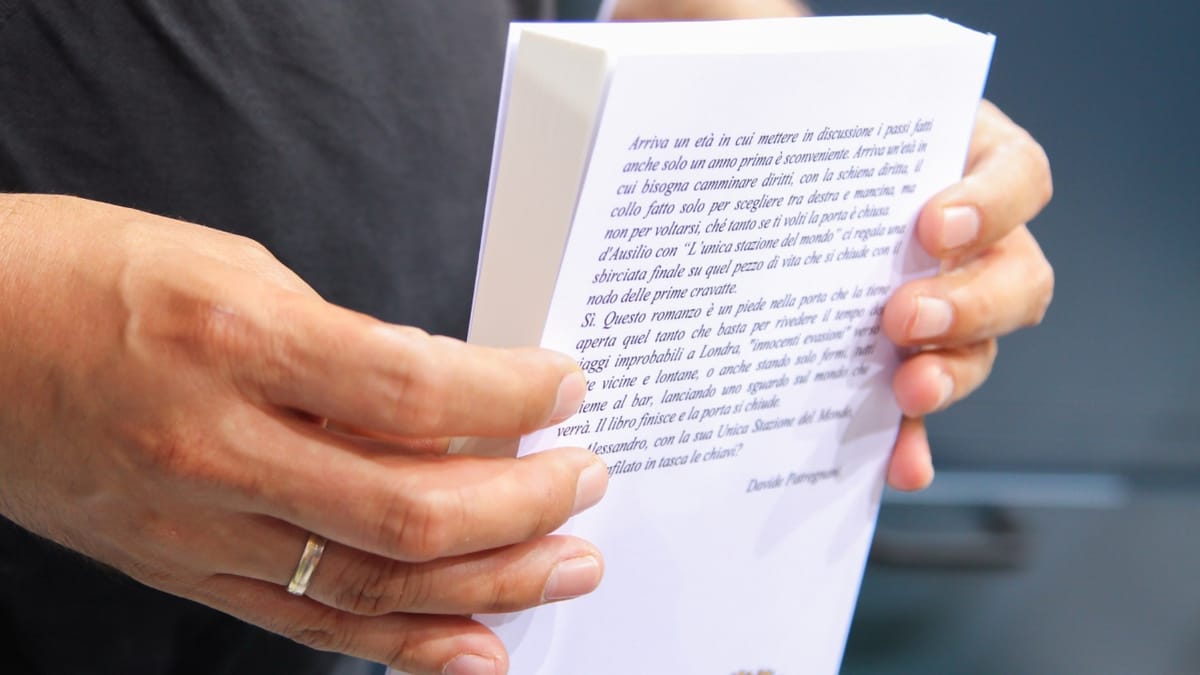 Arriva un età in cui mettere in discussione i passi fatti
anche solo un anno prima è sconveniente. Arriva un'età in
cui bisogna camminare diritti, con la schiena diritta, il
collo fatto solo per scegliere tra destra e mancina, ma
non per voltarsi, ché tanto se ti volti la porta è chiusa.
d'Ausilio con "L'unica stazione del mondo" ci regala una
sbirciata finale su quel pezzo di vita che si chiude con il
nodo delle prime cravatte.
Sì. Questo romanzo è un piede nella porta che la tiene
aperta quel tanto che basta per rivedere il tempo
improbabili a Londra, "innocenti evasioni" verso
vicine e lontane, o anche stando solo fermi, tutti
al bar, lanciando uno sguardo sul mondo che
verrà. Il libro finisce e la porta si chiude.
Alessandro, con la sua Unica Stazione del Mondo,
in tasca le chiavi?
Davide